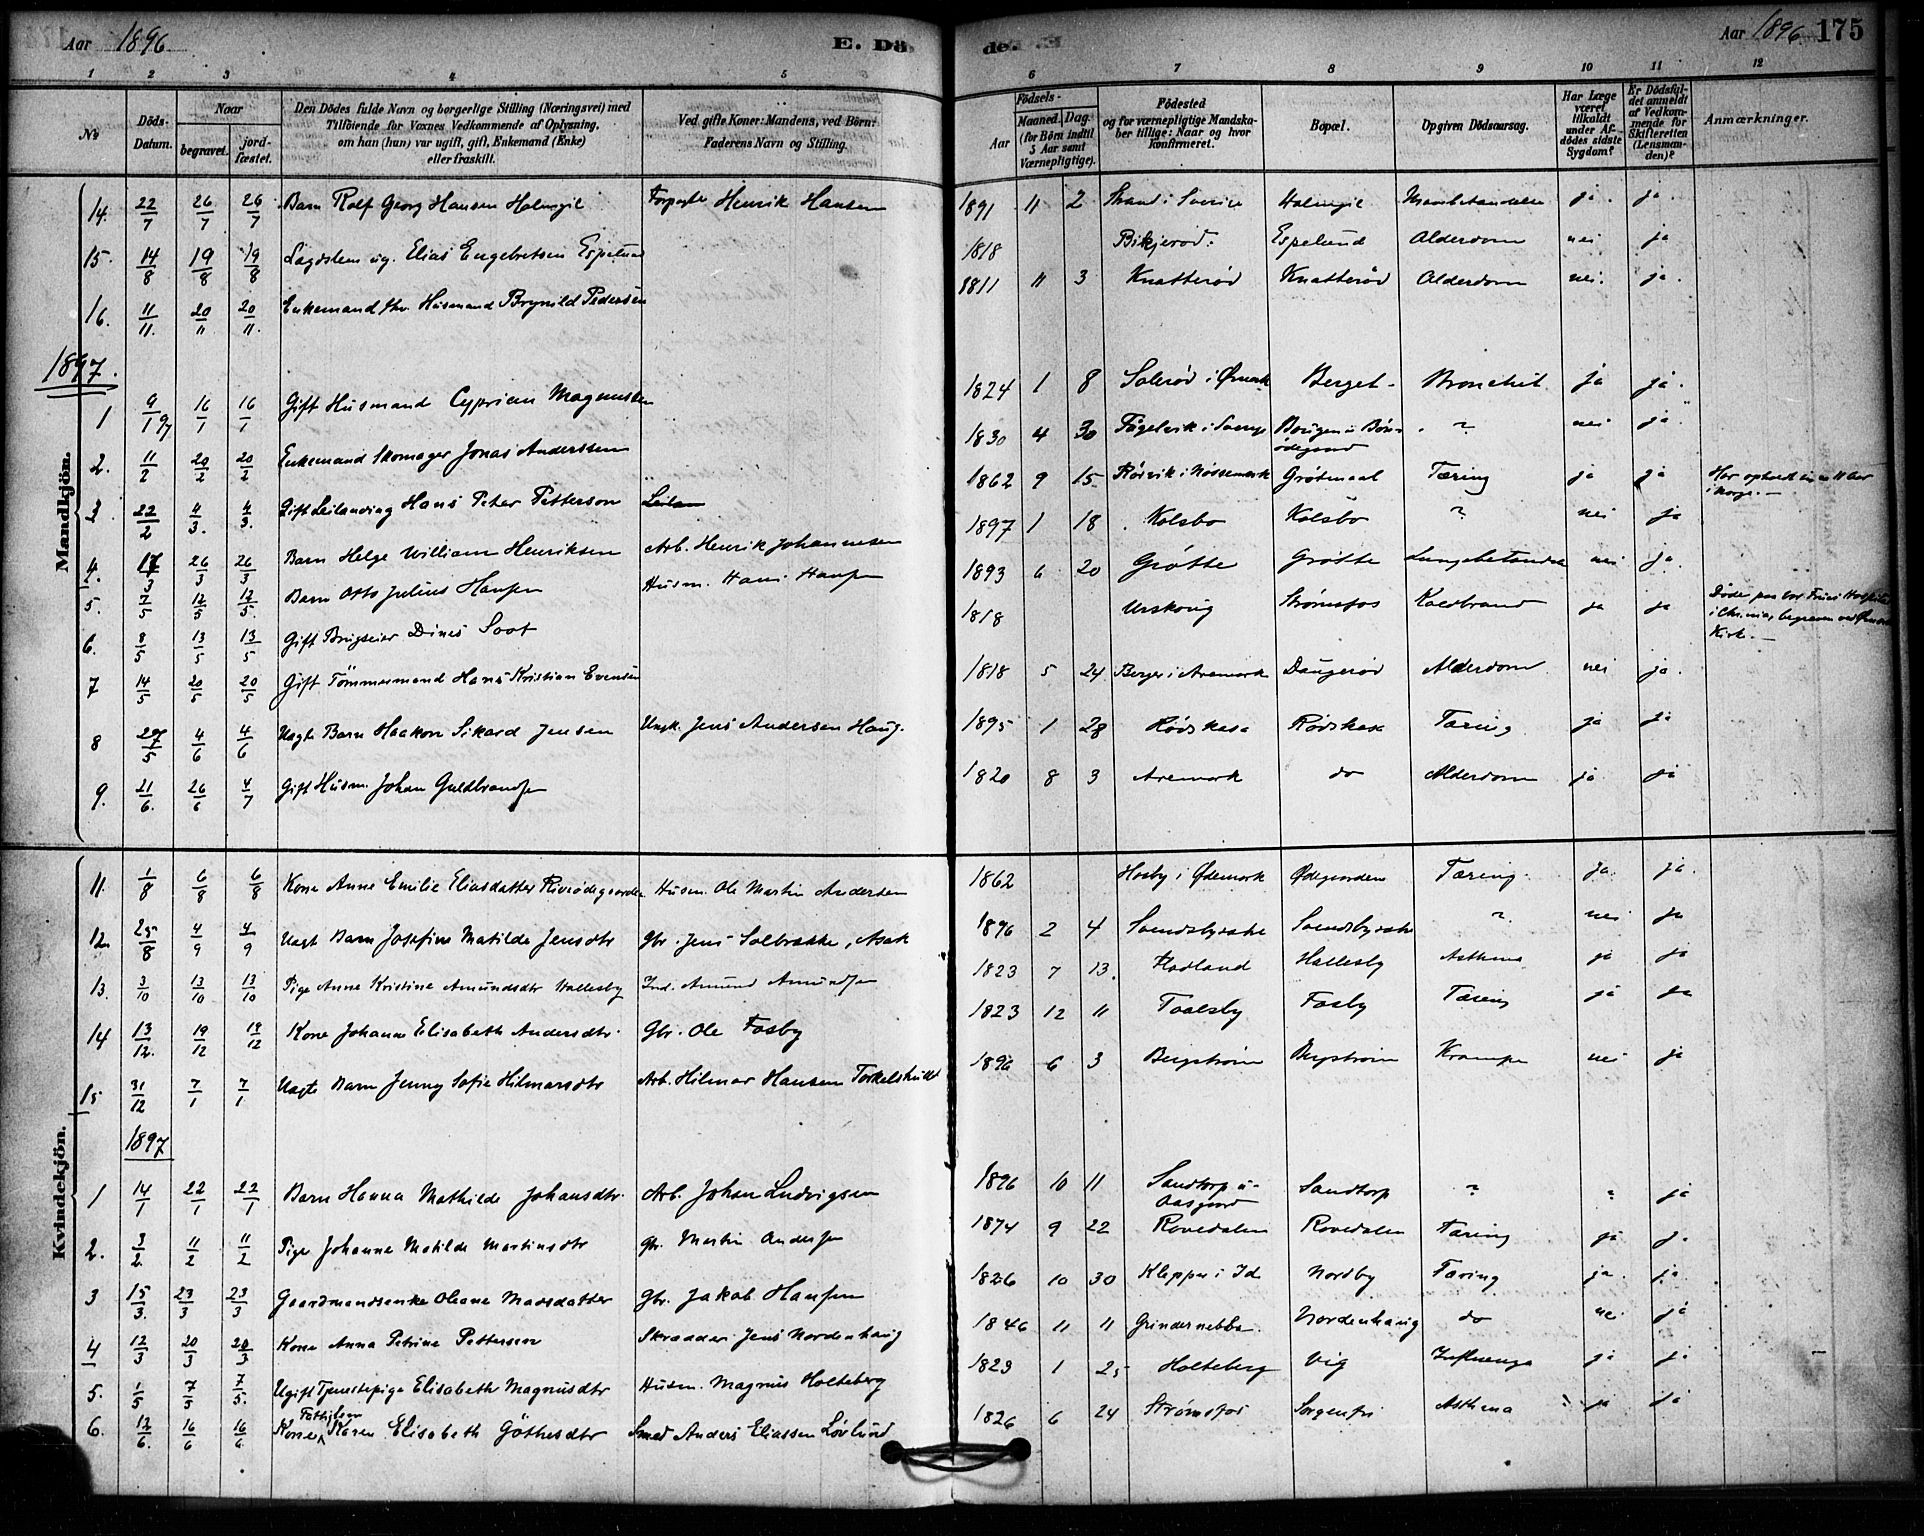 Aar 1896
E. Dö
de.
Aar 1896
175
1 2 3 4 5 6 7 8 9 10 11 12
No
Döds-Datum.
Naar
begravet.
jord-fæstet.
Den Dödes fulde Navn og borgerlige Stilling (Næringsvei) med
Tilföiende for Voxnes Vedkommende af Oplysning,
om han (hun) var ugift, gift, Enkemand (Enke)
eller fraskilt.
Ved gifte Koner: Mandens, ved Börn:
Faderens Navn og Stilling.
Födsels-
Aar
Maaned. Dag.
(for Börn indtil
5 Aar samt
Værnepligtige).
Födested
og for værnepligtige Mandska-
ber tillige: Naar og hvor
konfirmeret.
Bopæl.
Opgiven Dödsaarsag.
Har Læge
været
tilkaldt
under Af-
dödes sidste
Sygdom?
Er Dödsfal-
det anmeldt
af Vedkom-
mende for
Skifteretten
(Lensman-
den)?
Anmærkninger.
Mandkjön.
14. 22/7 26/7 26/7 Barn Rolf Georg Hansen Holmgil Henrik Hansen 1891 11 2 Holmgil ja. ja.
15. 14/8 19/8 19/8 Lagdslem ug. Elias Engebretsen Espelund 1818 Bikjerød. Espelund Alderdom nei ja
16. 11/11. 20/11 20/11. Enkemand fhv. Husmand Brynild Pedersen 1811 11 3 Knatterød Knatterød Alderdom nei. ja.
1897.
1 9/1 97 16/1 16/1 Gift Husmand Cyprian Magnussen 1824 1 8 Solerød i Ømark Berget Bronchit ja ja.
2. 11/2 20/2 20/2 Enkemand Skomager Jonas Anderssen 1830 4 30 ? nei ja
3 22/2 4/3. 4/3. Gift Leilænding Hans Peter Petterson 1862 9 15 Grøtmaal Tæring ja ja
4. 17/3 26/3 26/3 Barn Helge William Henriksen Arb. Henrik Johannesen 1897 1 18 Kolsbo Kolsbo ? nei ja
5. 7/5 12/5 12/5. Barn Otto Julius Hansen Husm. Hans Hansen 1893 6 20 Grøtte Grøtte nei ja.
6. 8/5 13/5 13/5 Gift Brugseier Dines Soot 1818 Urskoug Strømsfos Koldbrand ja ja
7 14/5 20/5 20/5 Gift Tömmermand Hans Kristian Evensen 1818 5 24 Berger i Aremark Alderdom nei ja.
8 27/5 4/6 4/6 Uægte Barn Haakon Sikard Jensen Ungk. Jens Andersen Haug. 1895 1 28 Rødskasa Rødskasa Tæring ja ja
9. 21/6. 26/6 4/7 Gift Husm. Johan Guldbrandsen 1820 8 3 Aremark do Alderdom ja ja
Kvindekjön.
11. 1/8 6/8 6/8 Kone Anne Emilie Eliasdatter Husm. Ole Martin Andersen 1862 Hosby i Ødemark Ødegaarden Tæring. ja ja.
12. 25/8 4/9 4/9 Uægt Barn Josefine Matilde Jensdtr Gbr. Jens Solbrække, Asak 1896 2 4 ? nei ja
13. 3/10 13/10 13/10 Pige Anne Kristine Amundsdtr Hallesby Ind. Amund Amundsen 1823 7 13. Hallesby Asthma ja ja
14 13/12. 19/12 19/12 Kone Johanne Elisabeth Andersdtr. Gbr. Ole Fosby 1823 12 11 Toalsby Fosby Tæring ja ja
15 31/12 7/1 7/1 Uægte Barn Jenny Sofie Hilmarsdtr Arb. Hilmar Hansen 1896 6 3 Bergstrøm Bergstrøm Krampe nei ja
1897
1 14/1 22/1 22/1 Barn Hanna Mathilde Johansdtr. Arb. Johan Ludvigsen 1896 10 11 Sandtorp u. Aasgaard Sandtorp ? ? ja
2. 3/2. 11/2 11/2 Pige Johanne Matilde Martinsdtr Gbr. Martin Andersen 1874 9 22 Rovedalen Rovedalen Tæring ja j.
3 15/3. 23/3 23/3 Gaardmandsenke Oleane Madsdatter Gbr. Jakob Hansen 1826 10 30 Klepper i Id Nordby Tæring ja ja
4 12/3 20/3 20/3 Kone Anna Petrine Pettersen Skrædder Jens Nordenhaug 1846 11 11 Grindernebba. Nordenhaug do nei ja
5. 1/5 7/5 7/5. Ugift Tjenestepige Elisabeth Magnusdtr Husm. Magnus Holteberg 1823 1 25 Holteberg Vig Influenza ja ja
6. 12/6. 16/6 16/6. Kone Karen Elisabeth Göthesdtr Smed Anders Eliassen Lövlund 1826 6 24 Strømsfos Sorgenfri Asthma ja ja